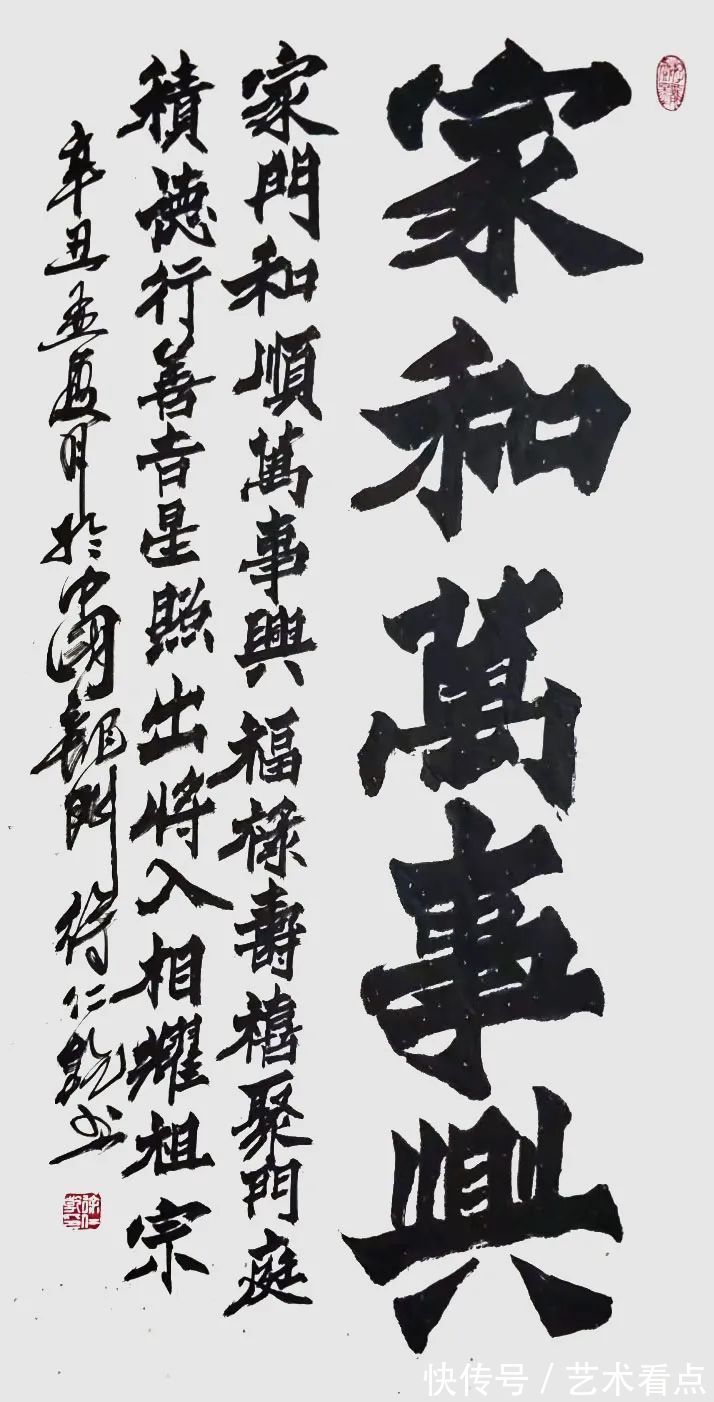 家和萬事興
家門和順萬事興福禄壽禧聚門庭
積德行善吉星照出将入相耀祖宗
辛丑孟夏月於中國龍門徐仁书
快传号 / 艺术看点